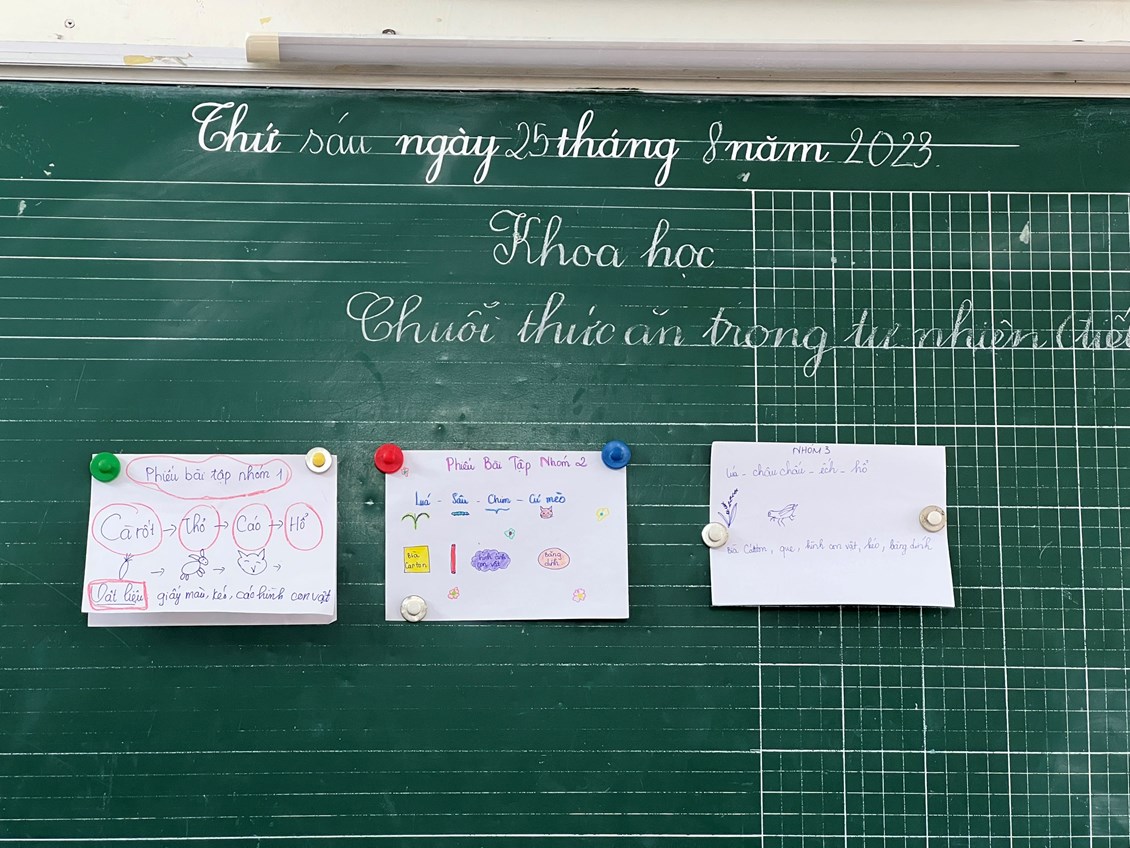 Thứ sáu ngày 25 tháng 8 năm 2023
Khoa học
Chuỗi thức ăn trong tự nhiên (tiế
Phiếu bài tập nhóm 1
Cà rốt → Thỏ → Cáo → Hổ
→ → →
Vật liệu giấy màu, kéo, các hình con vật
Phiếu Bài Tập Nhóm 2
Luá - Sâu - Chim - Cú mèo
Bìa Carton hình ảnh con vật Băng dính
NHÓM 3
Lúa - châu chấu - ếch - hổ
Bìa Cátton, que, hình con vật, kéo, băng dính